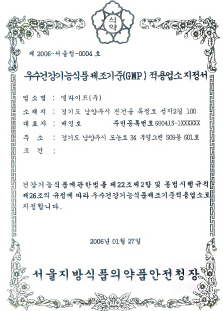 식약
제 2006-서울청-0004 호
우수건강기능식품제조기준(GMP) 적용업소지정서
업소명 : 엠라이프(주)
소재지 : 경기도 남양주시 진건읍
대표자 : 배영호 주민등록번호 690413-1XXXXXX
주 소 : 경기도 남양주시 도농로 34 부영그린 909동 601호
조 건 :
건강기능식품에관한법률 제22조제2항 및 동법시행규칙
제26조의 규정에 따라 우수건강기능식품제조기준적용업소로
지정합니다.
2006년 01월 27일
서울지방식품의약품안전청장